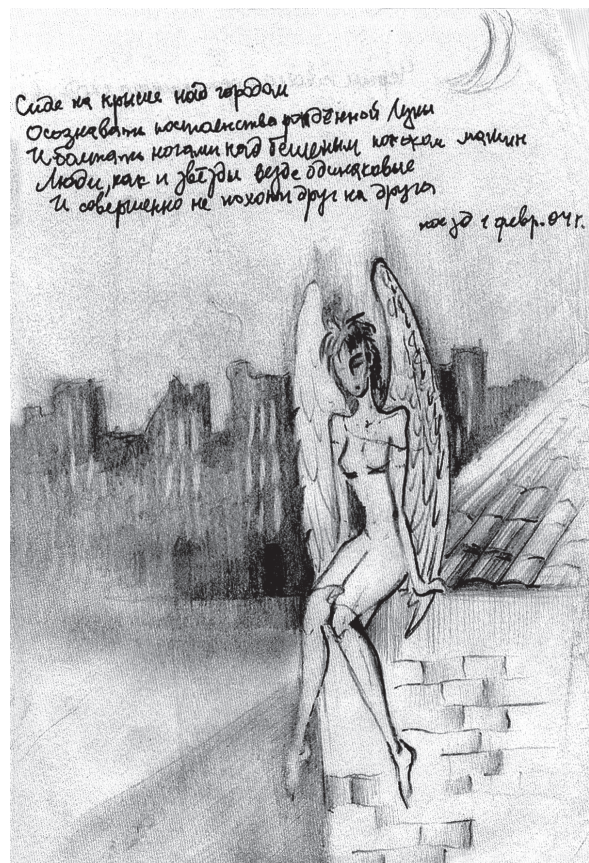 Сидя на крыше над городом
Осознавать постоянство рождённой Луны
И болтать ногами над бешеным потоком машин
Люди, как и звёзды везде одинаковые
И совершенно не похожи друг на друга
1 февр. 04 г.